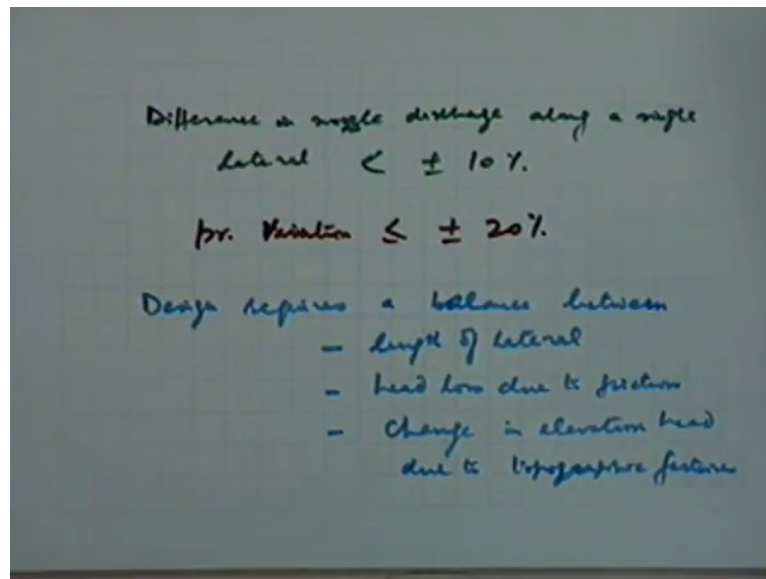 Difference in nozzle discharge along a single
lateral < ± 10%.
pr. Variation ≤ ± 20%.
Design requires a balance between
- length of lateral
- head loss due to friction
- Change in elevation head
due to topographic features